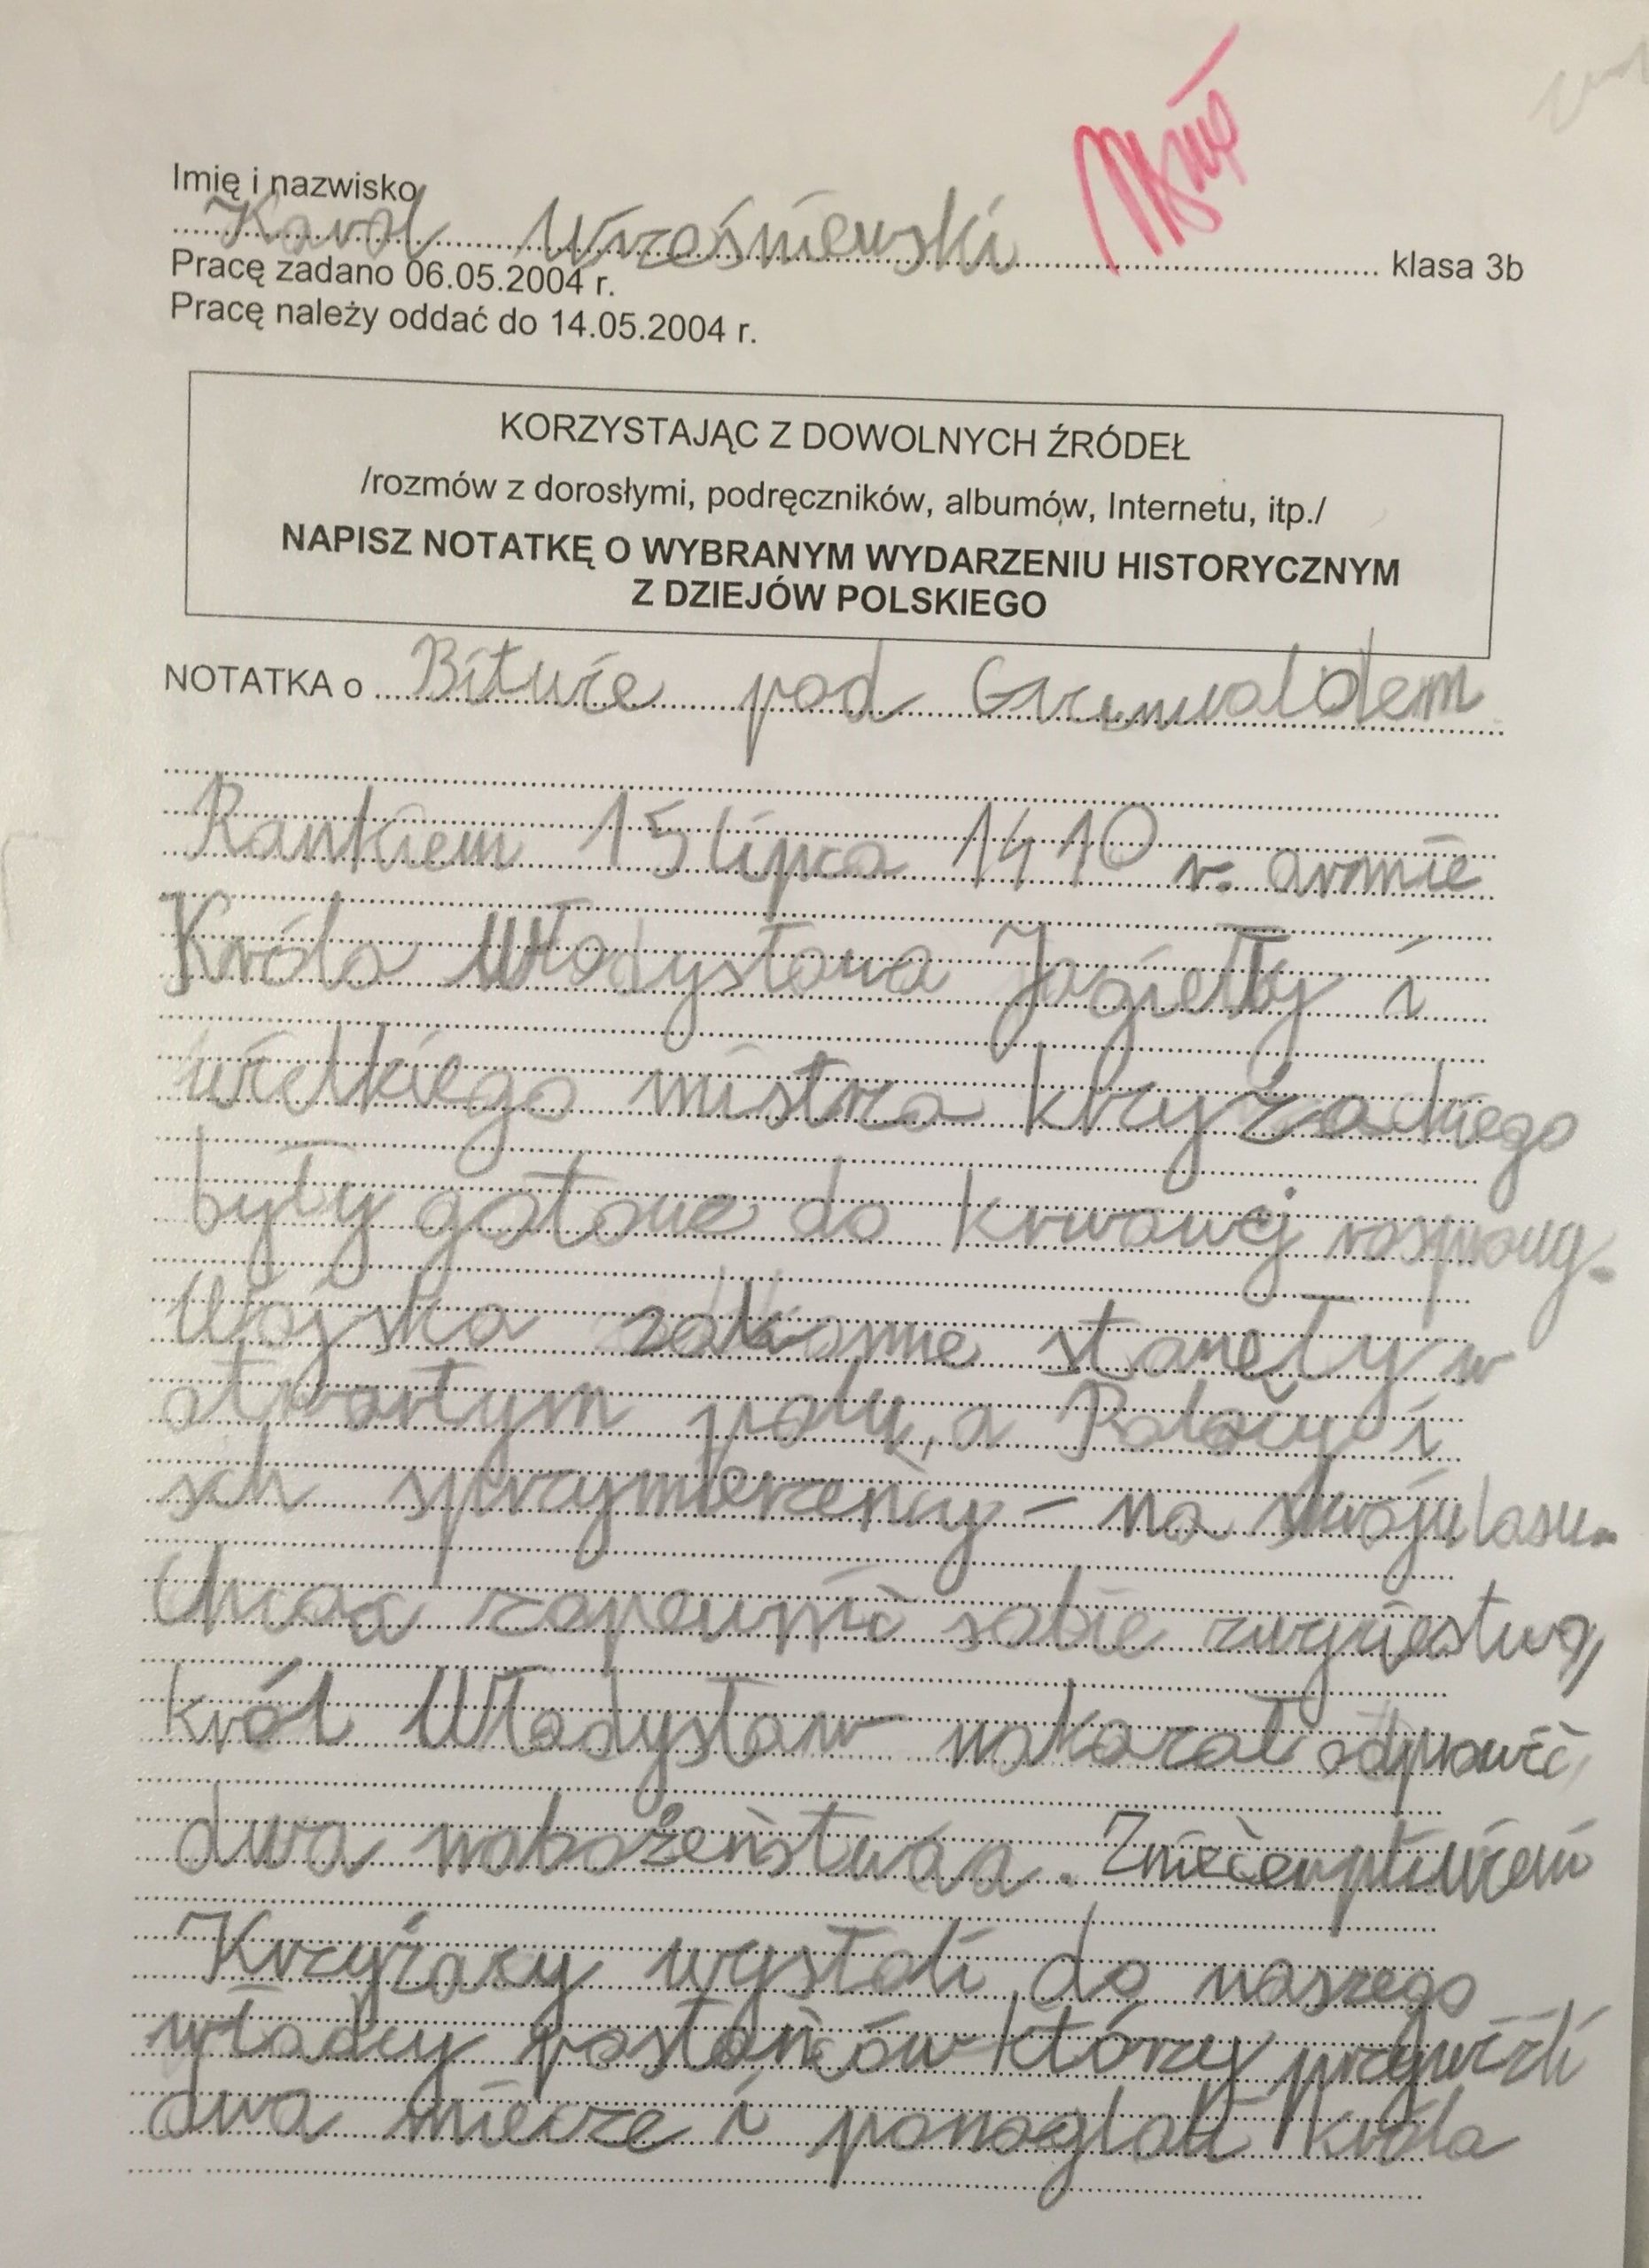 Imię i nazwisko
Karol Wrześniewski klasa 3b
Pracę zadano 06.05.2004 r.
Pracę należy oddać do 14.05.2004 r.
KORZYSTAJĄC Z DOWOLNYCH ŹRÓDEŁ
/rozmów z dorosłymi, podręczników, albumów, Internetu, itp./
NAPISZ NOTATKĘ O WYBRANYM WYDARZENIU HISTORYCZNYM
Z DZIEJÓW POLSKIEGO
NOTATKA o Bitwie pod Grunwaldem
Rankiem 15 lipca 1410 r. armie
Króla Władysława Jagiełły i
wielkiego mistrza krzyżackiego
były gotowe do krwawej rosprawy.
Wojska zakonne stanęły w
otwartym polu, a Polacy i
ich sprzymierzeńcy – na skraju lasu.
Chcąc zapewnić sobie zwycięstwo,
król Władysław nakazał odprawić
dwa nabożeństwaa. Zniecierpliwieni
Krzyżacy wysłali do naszego
władcy posłańców którzy przywieźli
dwa miecze i ponaglali króla